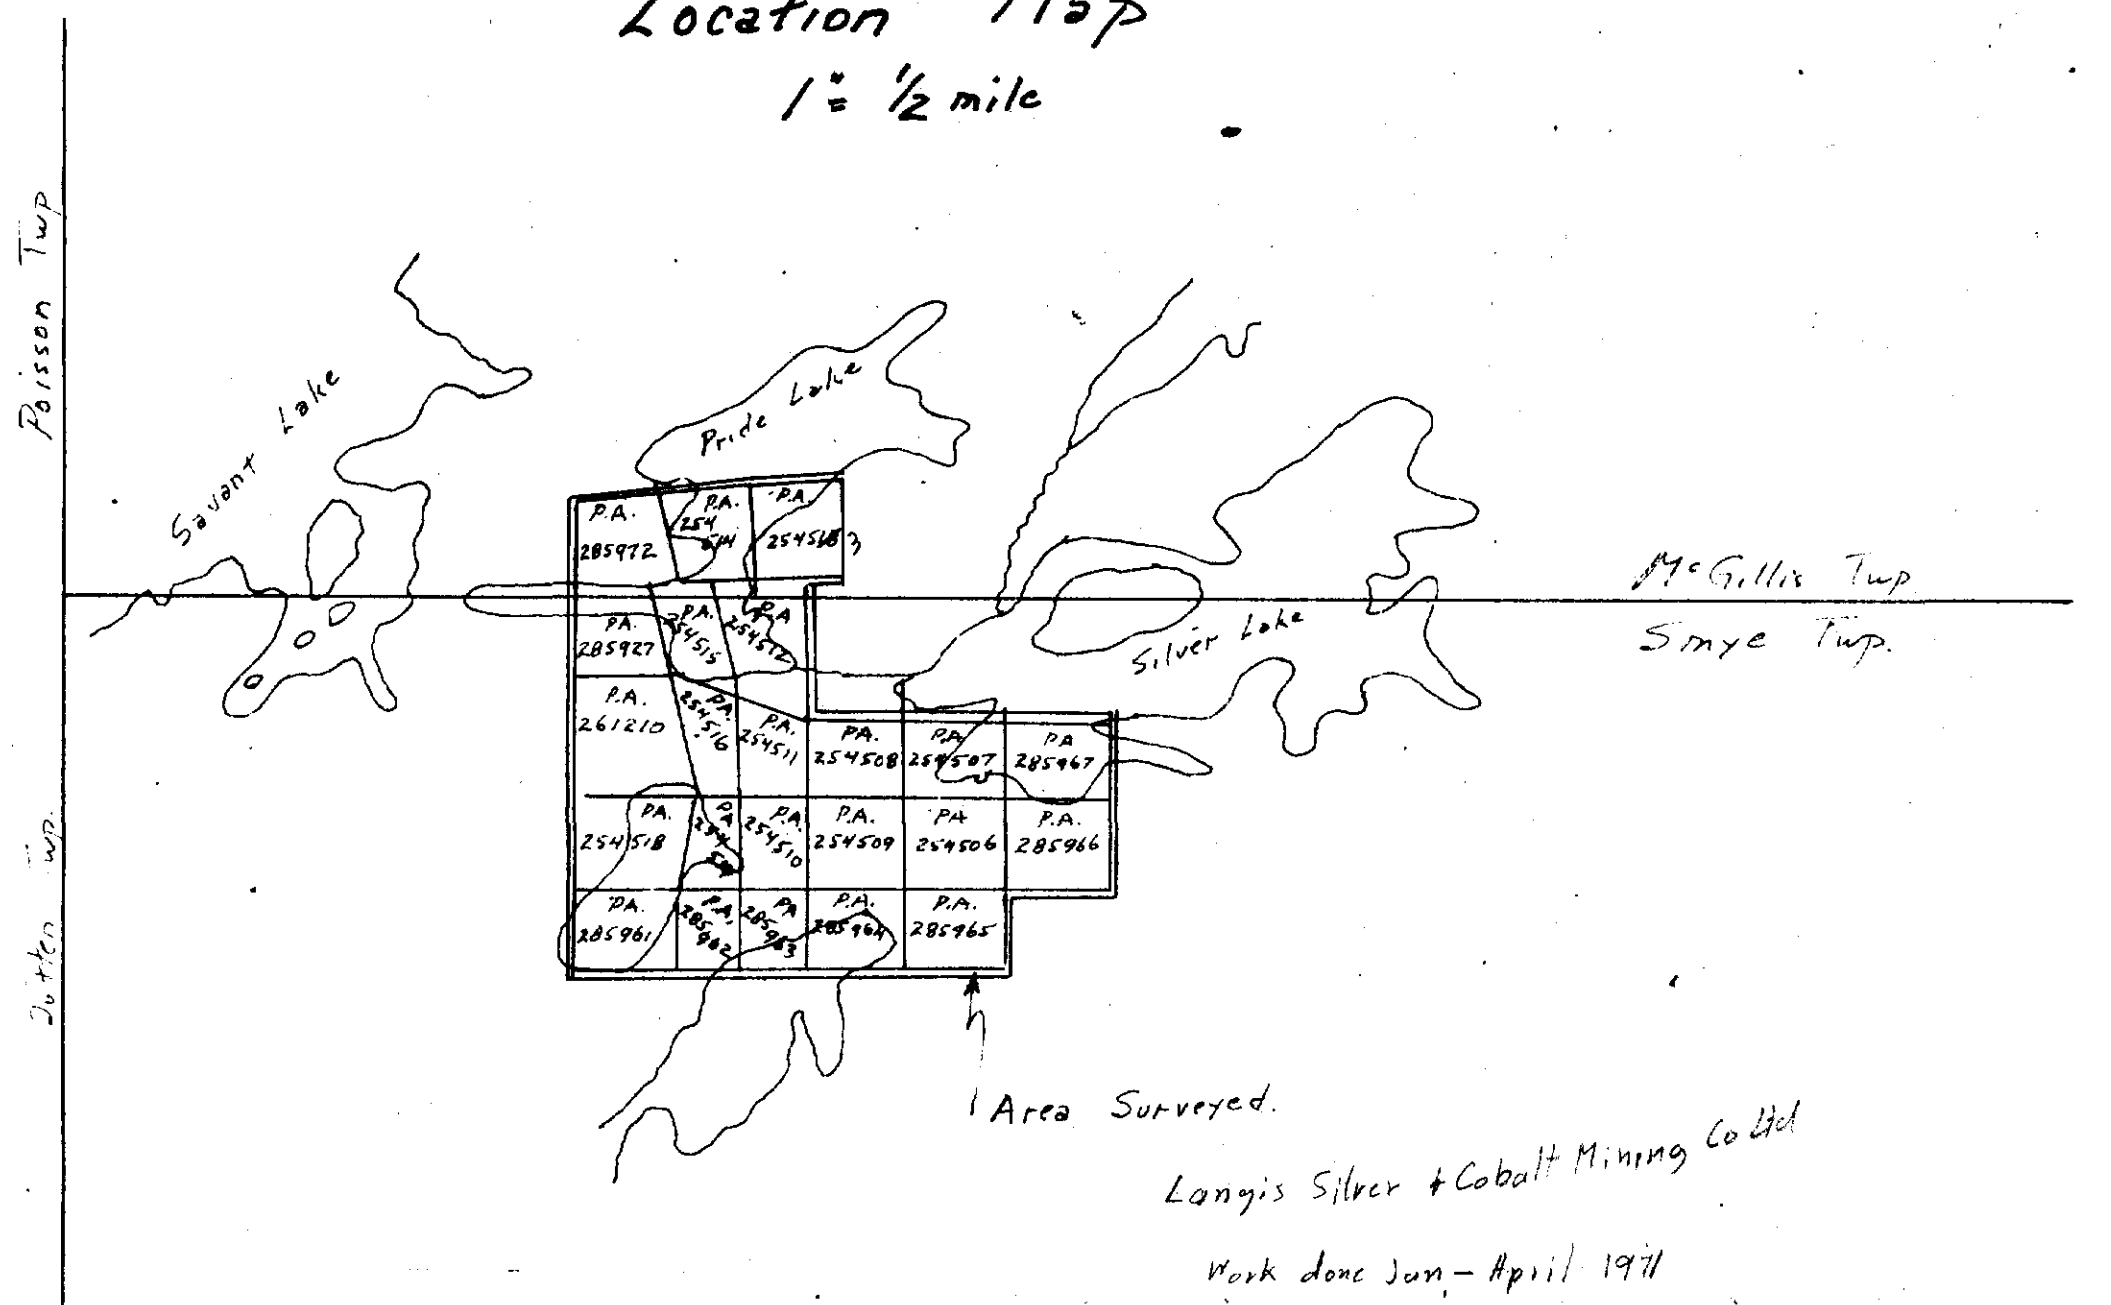 Location Map
1" = 1/2 mile
Poisson Twp
Savant Lake
Pride Lake
McGillis Twp
Smye Twp.
Silver Lake
P.A.
285972
P.A.
254
514
P.A.
254513
PA.
285927
PA.
254515
PA
254512
P.A.
261210
PA.
254516
P.A.
254511
PA.
254508
PA
254507
PA
285967
PA.
254518
PA
254
P.A.
254510
P.A.
254509
PA
254506
P.A.
285966
PA.
285961
P.A.
285962
PA
285963
P.A.
285964
P.A.
285965
Twp.
Area Surveyed.
Langis Silver & Cobalt Mining Co Ltd
Work done Jan - April 1971